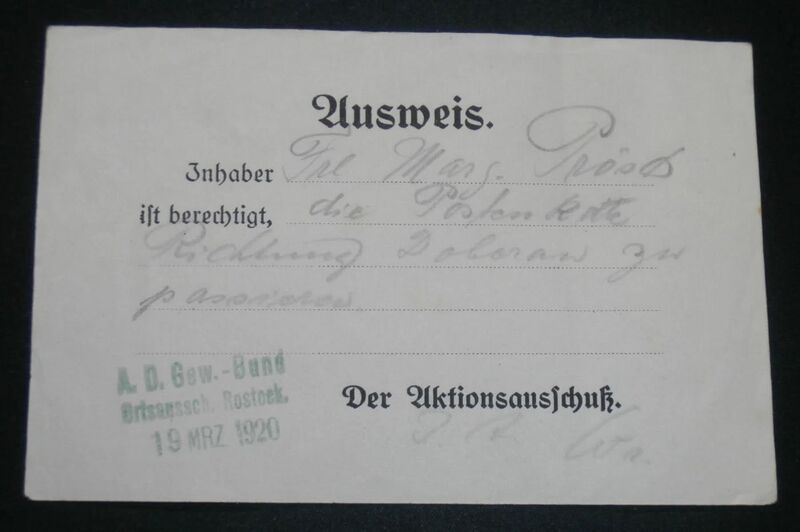 Ausweis.
Inhaber Frl Marg. Pröst
ist berechtigt, die Postenkette
Richtung Doberan zu
passieren.
A. D. Gew.-Bund
Ortsaussch. Rostock.
19 MRZ 1920
Der Aktionsausschuß.
I. A.